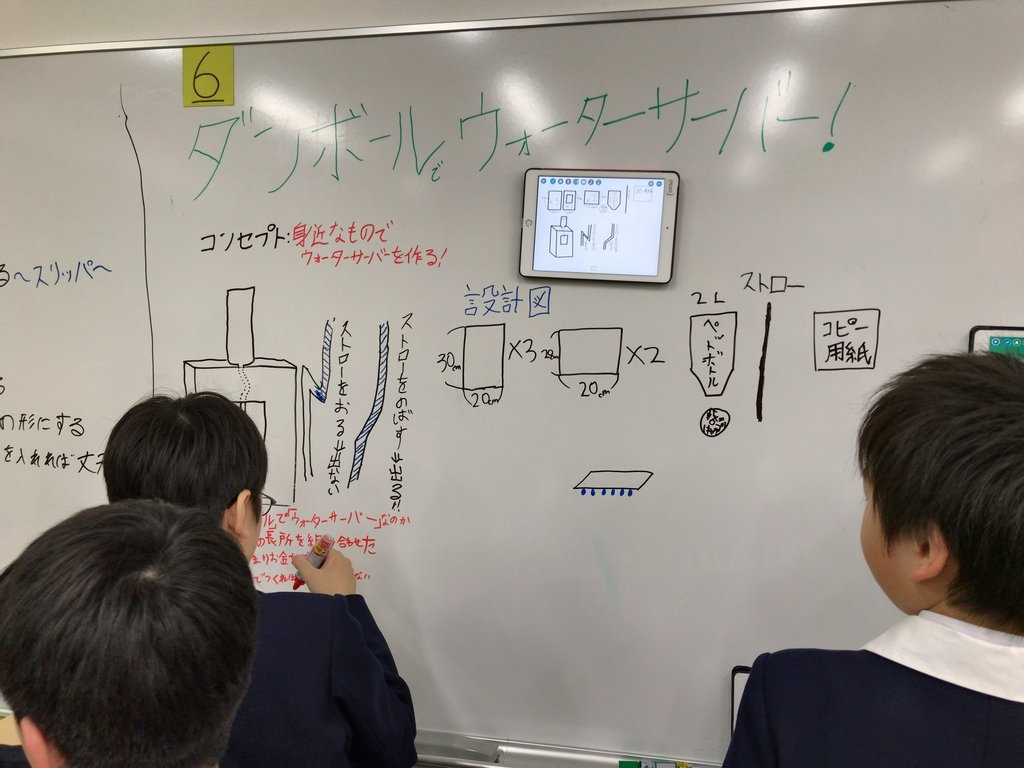 6
ダンボールで ウォーターサーバー!
コンセプト:身近なもので
ウォーターサーバーを作る!
る〜スリッパ〜
る
の形にする
を入れれば丈
ストローをおる→出ない
ストローをのばす→出る!!
設計図
30cm
20cm
×3
20cm
×2
2L
ペットボトル
ストロー
コピー
用紙
ル」で「ウォーターサーバー」なのか
の長所を組み合わせた
まりお金
でつくれば
ない